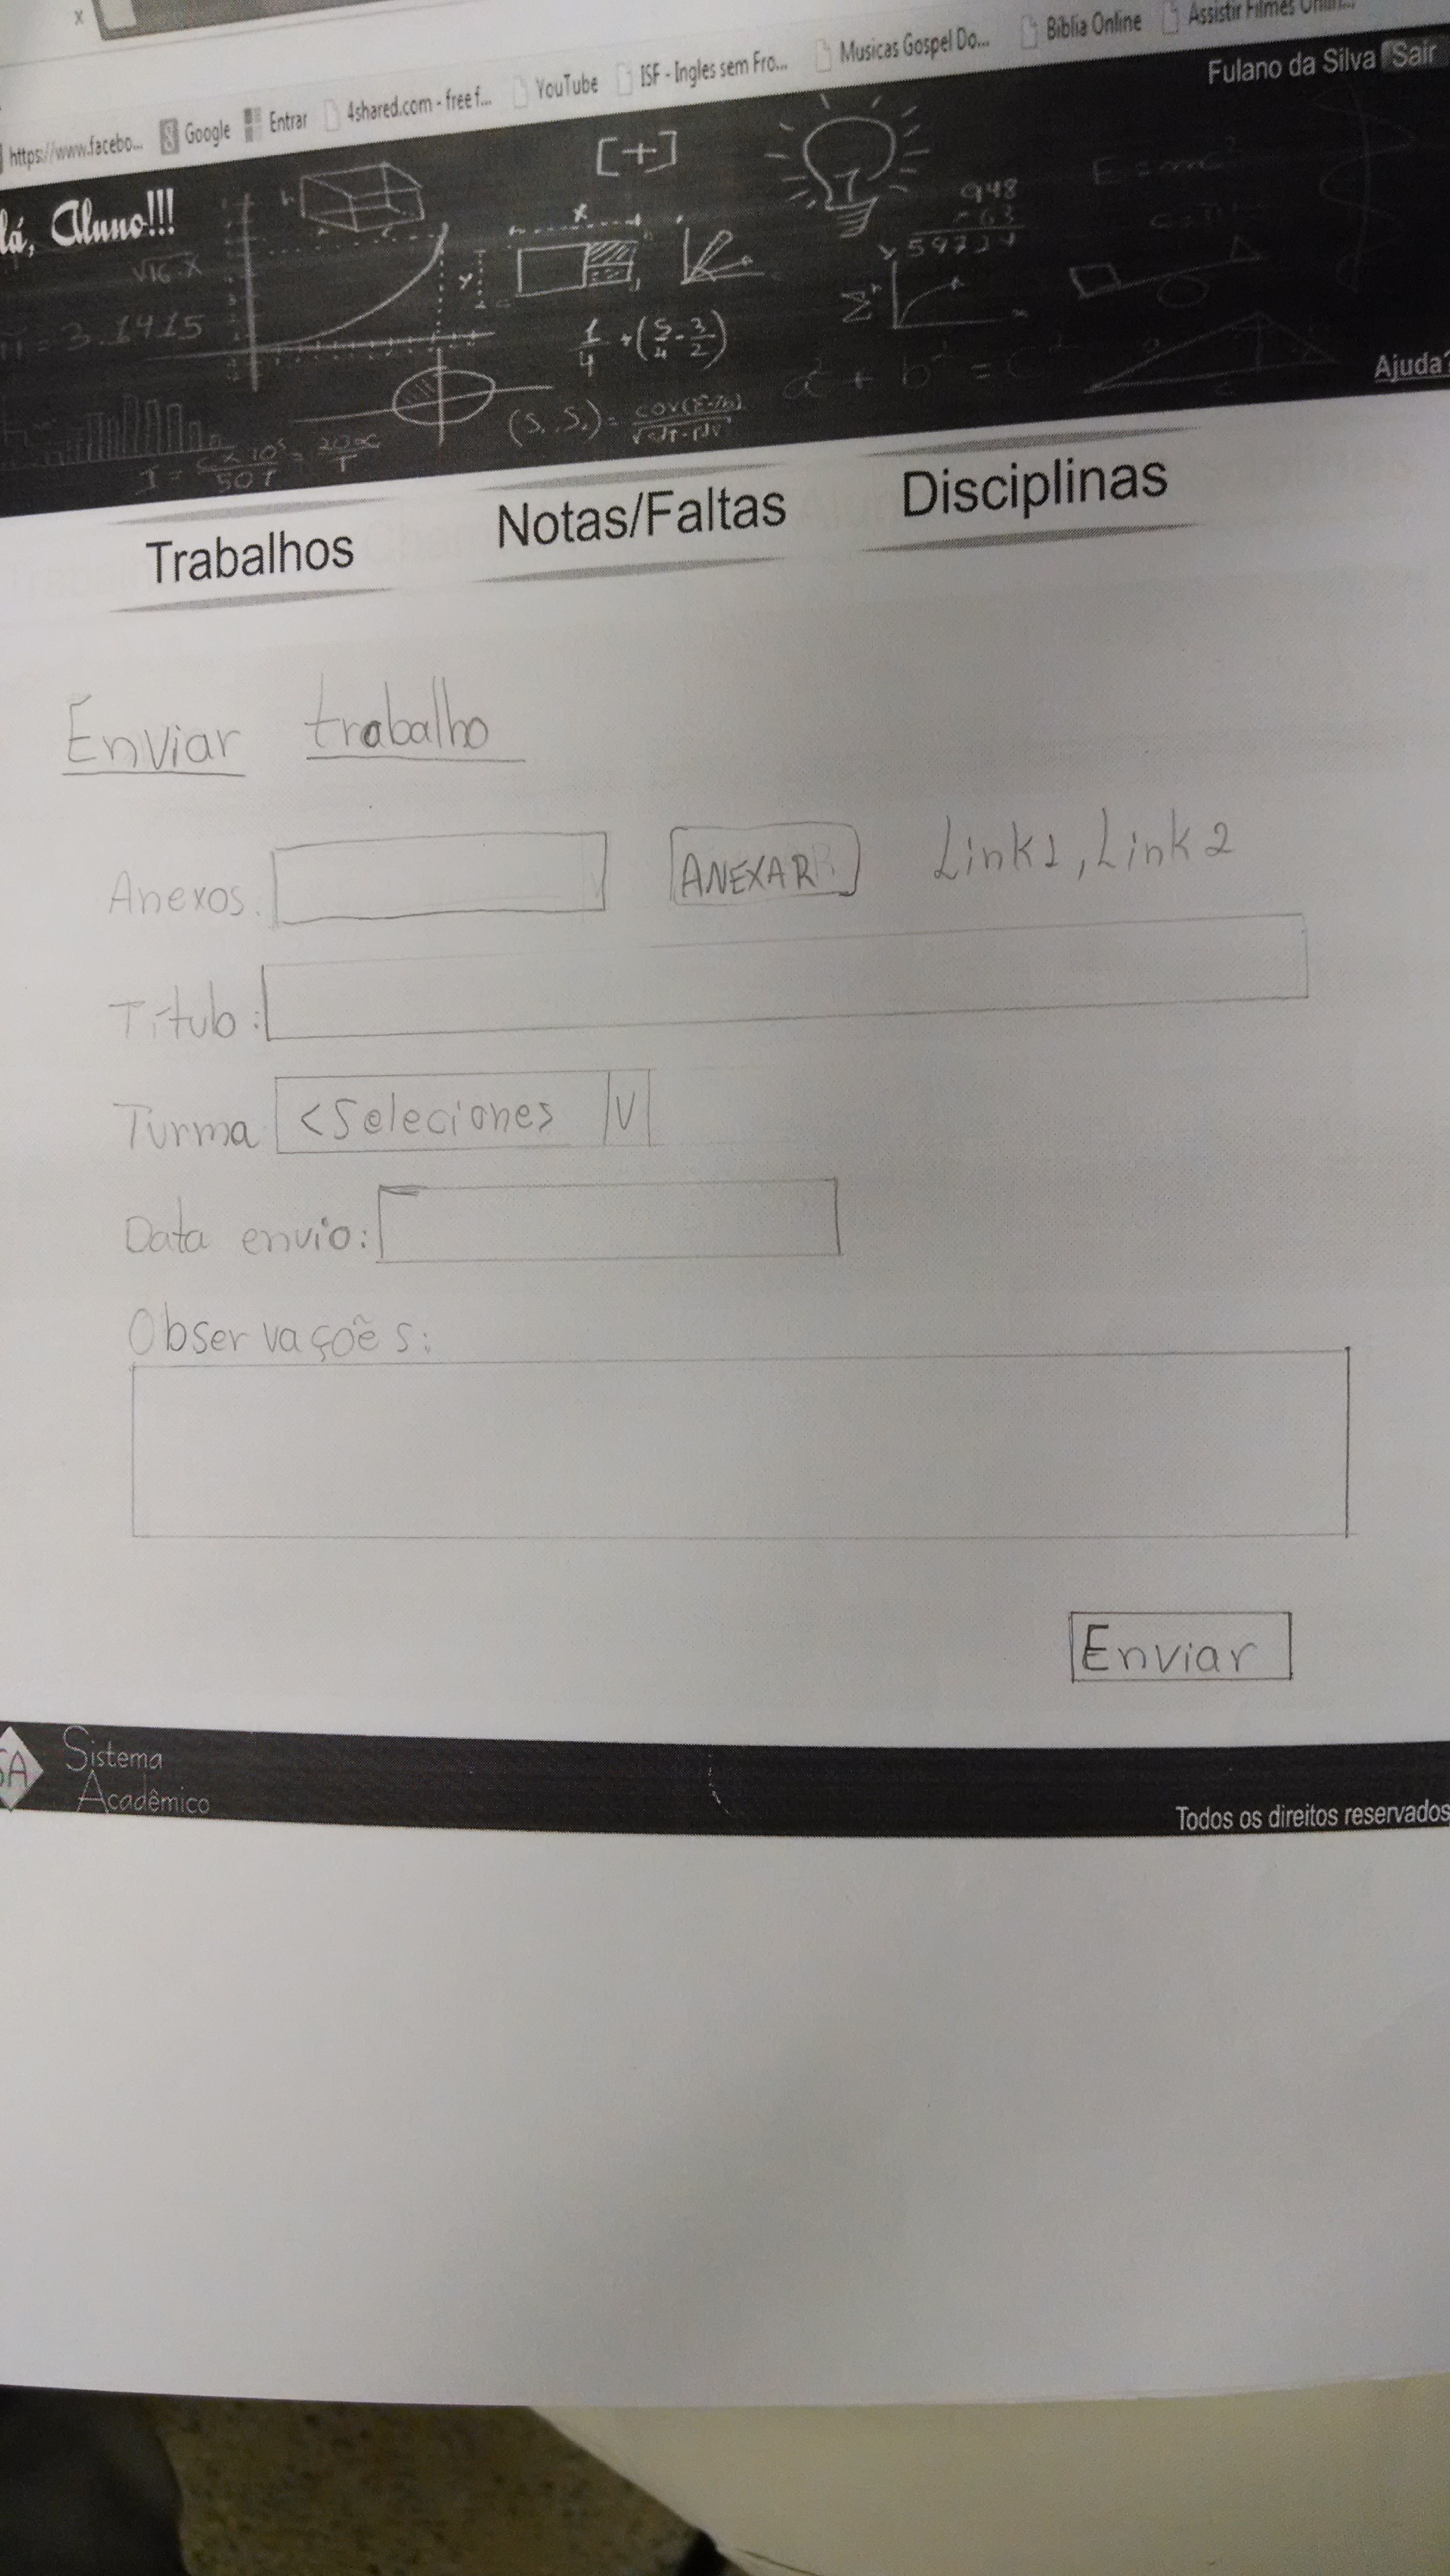 x
https://www.facebo... Google Entrar 4shared.com - free f... YouTube ISF - Ingles sem Fro... Musicas Gospel Do... Bíblia Online Assistir Filmes Onlin...
Fulano da Silva Sair
lá, Aluno!!!
[+]
948
63
59724
E = mc²
√16.x
π = 3.1415
1/4 + (5/4 - 3/2)
a² + b² = c²
Ajuda?
Trabalhos Notas/Faltas Disciplinas
Enviar trabalho
Anexos: ANEXAR Link1, Link2
Título:
Turma <Selecione> V
Data envio:
Observações:
Enviar
SA Sistema
Acadêmico
Todos os direitos reservados